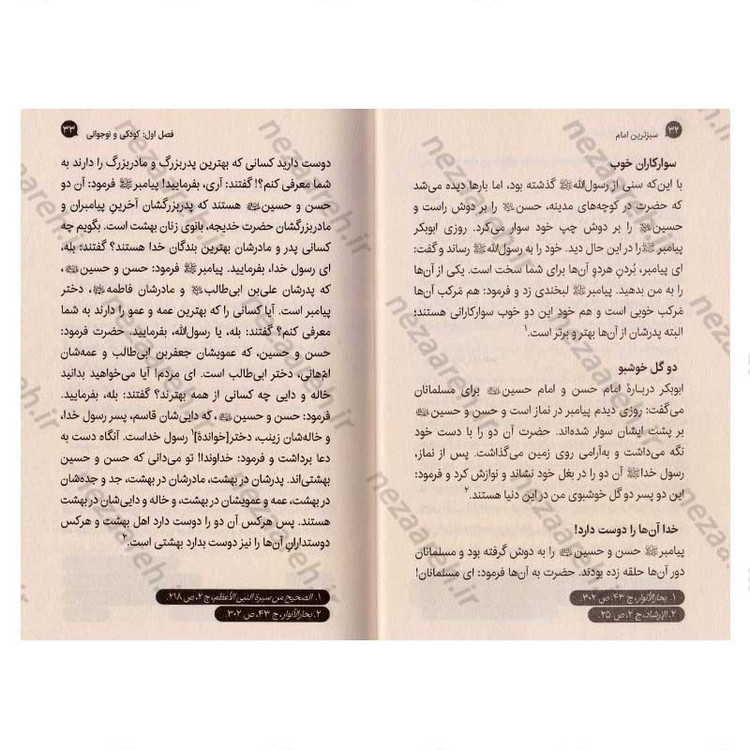 ۳۲ سبزترین امام
سوارکاران خوب
با این‌که سنی از رسول‌الله ﷺ گذشته بود، اما بارها دیده می‌شد
که حضرت در کوچه‌های مدینه، حسن را بر دوش راست و
حسین را بر دوش چپ خود سوار می‌کرد. روزی ابوبکر
پیامبر ﷺ را در این حال دید. خود را به رسول‌الله ﷺ رساند و گفت:
ای پیامبر، بُردنِ هردوِ آن‌ها برای شما سخت است. یکی از آن‌ها
را به من بدهید. پیامبر ﷺ لبخندی زد و فرمود: هم مَرکب آن‌ها
مَرکب خوبی است و هم خود این دو خوب سوارکارانی هستند؛
البته پدرشان از آن‌ها بهتر و برتر است.۱
دو گل خوشبو
ابوبکر دربارهٔ امام حسن و امام حسین برای مسلمانان
می‌گفت: روزی دیدم پیامبر در نماز است و حسن و حسین
بر پشت ایشان سوار شده‌اند. حضرت آن دو را با دست خود
نگه می‌داشت و به‌آرامی روی زمین می‌گذاشت. پس از نماز،
رسول خدا ﷺ آن دو را در بغل خود نشاند و نوازش کرد و فرمود:
این دو پسر دو گل خوشبوی من در این دنیا هستند.۲
خدا آن‌ها را دوست دارد!
پیامبر ﷺ حسن و حسین را به دوش گرفته بود و مسلمانان
دور آن‌ها حلقه زده بودند. حضرت به آن‌ها فرمود: ای مسلمانان!
۱. بحارالأنوار، ج ۴۳، ص ۳۰۲.
۲. الإرشاد، ج ۲، ص ۲۵.
فصل اول: کودکی و نوجوانی ۳۳
دوست دارید کسانی که بهترین پدربزرگ و مادربزرگ را دارند به
شما معرفی کنم؟! گفتند: آری، بفرمایید! پیامبر ﷺ فرمود: آن دو
حسن و حسین هستند که پدربزرگشان آخرینِ پیامبران و
مادربزرگشان حضرت خدیجه، بانوی زنان بهشت است. بگویم چه
کسانی پدر و مادرشان بهترین بندگان خدا هستند؟ گفتند: بله،
ای رسول خدا، بفرمایید. پیامبر ﷺ فرمود: حسن و حسین،
که پدرشان علی‌بن ابی‌طالب و مادرشان فاطمه، دختر
پیامبر است. آیا کسانی را که بهترین عمه و عمو را دارند به شما
معرفی کنم؟ گفتند: بله، یا رسول‌الله، بفرمایید. حضرت فرمود:
حسن و حسین، که عمویشان جعفربن ابی‌طالب و عمه‌شان
ام‌هانی، دختر ابی‌طالب است. ای مردم! آیا می‌خواهید بدانید
خاله و دایی چه کسانی از همه بهترند؟ گفتند: بله، بفرمایید.
فرمود: حسن و حسین، که دایی‌شان قاسم، پسر رسول خدا،
و خاله‌شان زینب، دختر[خواندهٔ]۱ رسول خداست. آنگاه دست به
دعا برداشت و فرمود: خداوندا! تو می‌دانی که حسن و حسین
بهشتی‌اند. پدرشان در بهشت، مادرشان در بهشت، جد و جده‌شان
در بهشت، عمه و عمویشان در بهشت، و خاله و دایی‌شان در بهشت
هستند. پس هرکس آن دو را دوست دارد اهل بهشت و هرکس
دوستدارانِ آن‌ها را نیز دوست بدارد بهشتی است.۲
۱. الصحیح من سیرة النبی الأعظم، ج ۲، ص ۲۱۸.
۲. بحارالأنوار، ج ۴۳، ص ۳۰۲.
nezaareh.ir